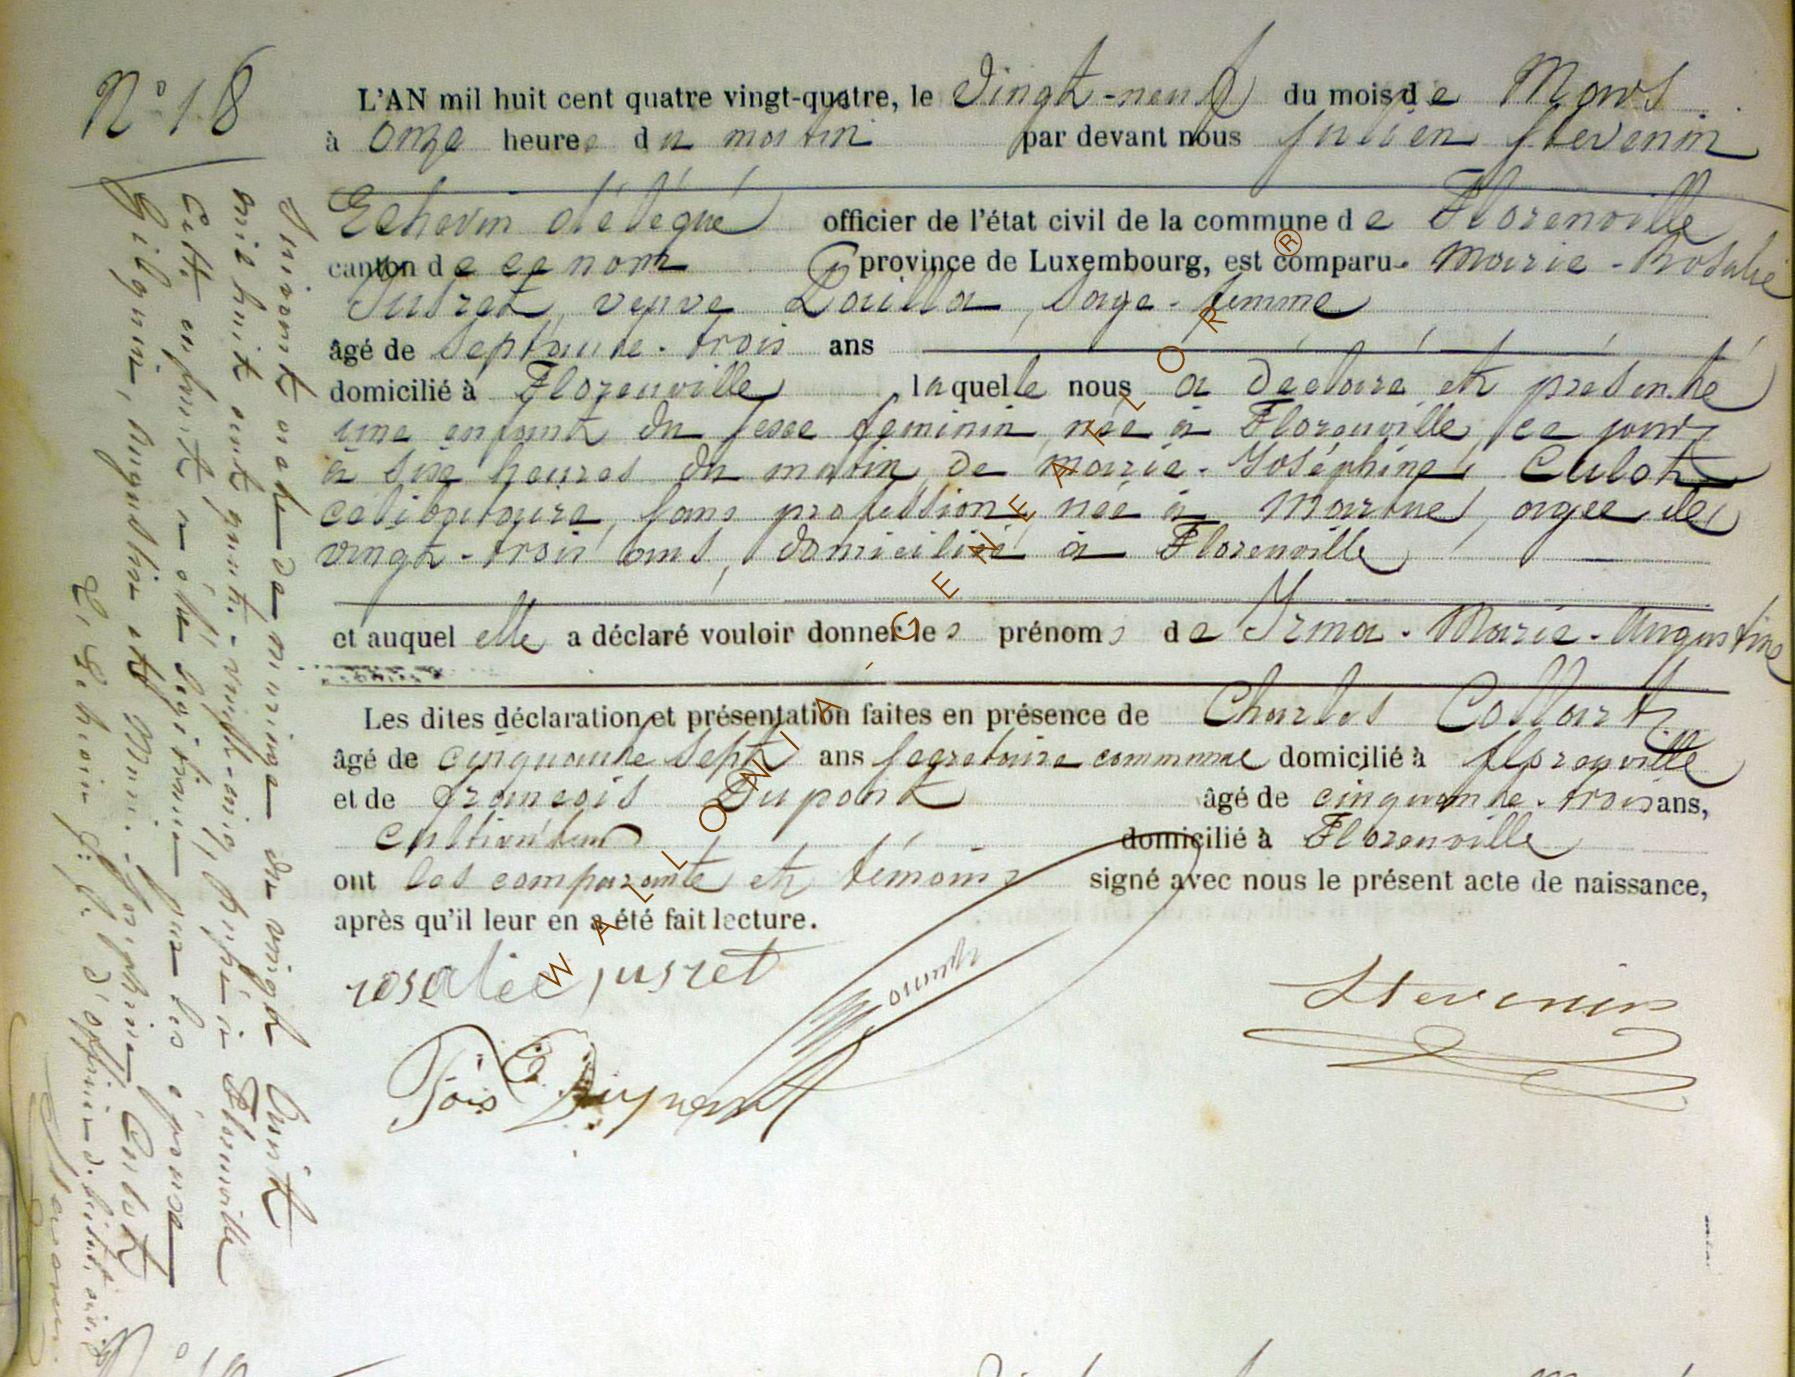 N° 18
L'AN mil huit cent quatre vingt-quatre, le Vingt-neuf du mois de Mars
à onze heures du matin par devant nous Julien Stevenin
Echevin délégué officier de l'état civil de la commune de Florenville
canton de ce nom province de Luxembourg, est comparue Marie-Rosalie
Jusret, veuve Pailla, sage-femme
âgé de septante-trois ans
domicilié à Florenville laquelle nous a déclaré et présenté
une enfant du sexe féminin née à Florenville, ce jour
à six heures du matin, de Marie-Joséphine Culot
célibataire, sans profession, née à Martue, agée de
vingt-trois ans, domiciliée à Florenville
et auquel elle a déclaré vouloir donner les prénoms de Irma-Marie-Augustine
Les dites déclaration et présentation faites en présence de Charles Collart
âgé de cinquante sept ans secretaire communal domicilié à florenville
et de françois Dupont âgé de cinquante-trois ans,
cultivateur domicilié à Florenville
ont les comparante et témoins signé avec nous le présent acte de naissance,
après qu'il leur en a été fait lecture.
rosalie jusret
Stevenin
Fois Dupont
Suivant acte de mariage du vingt Août
mil huit cent quatre-vingt-onze, dressé à Florenville
cette enfant a été légitimée par les époux
Augustin et Marie-Joséphine Culot
L'Echevin f. f. d'officier de l'état civil
WALLONIA - GENEALOR R ®